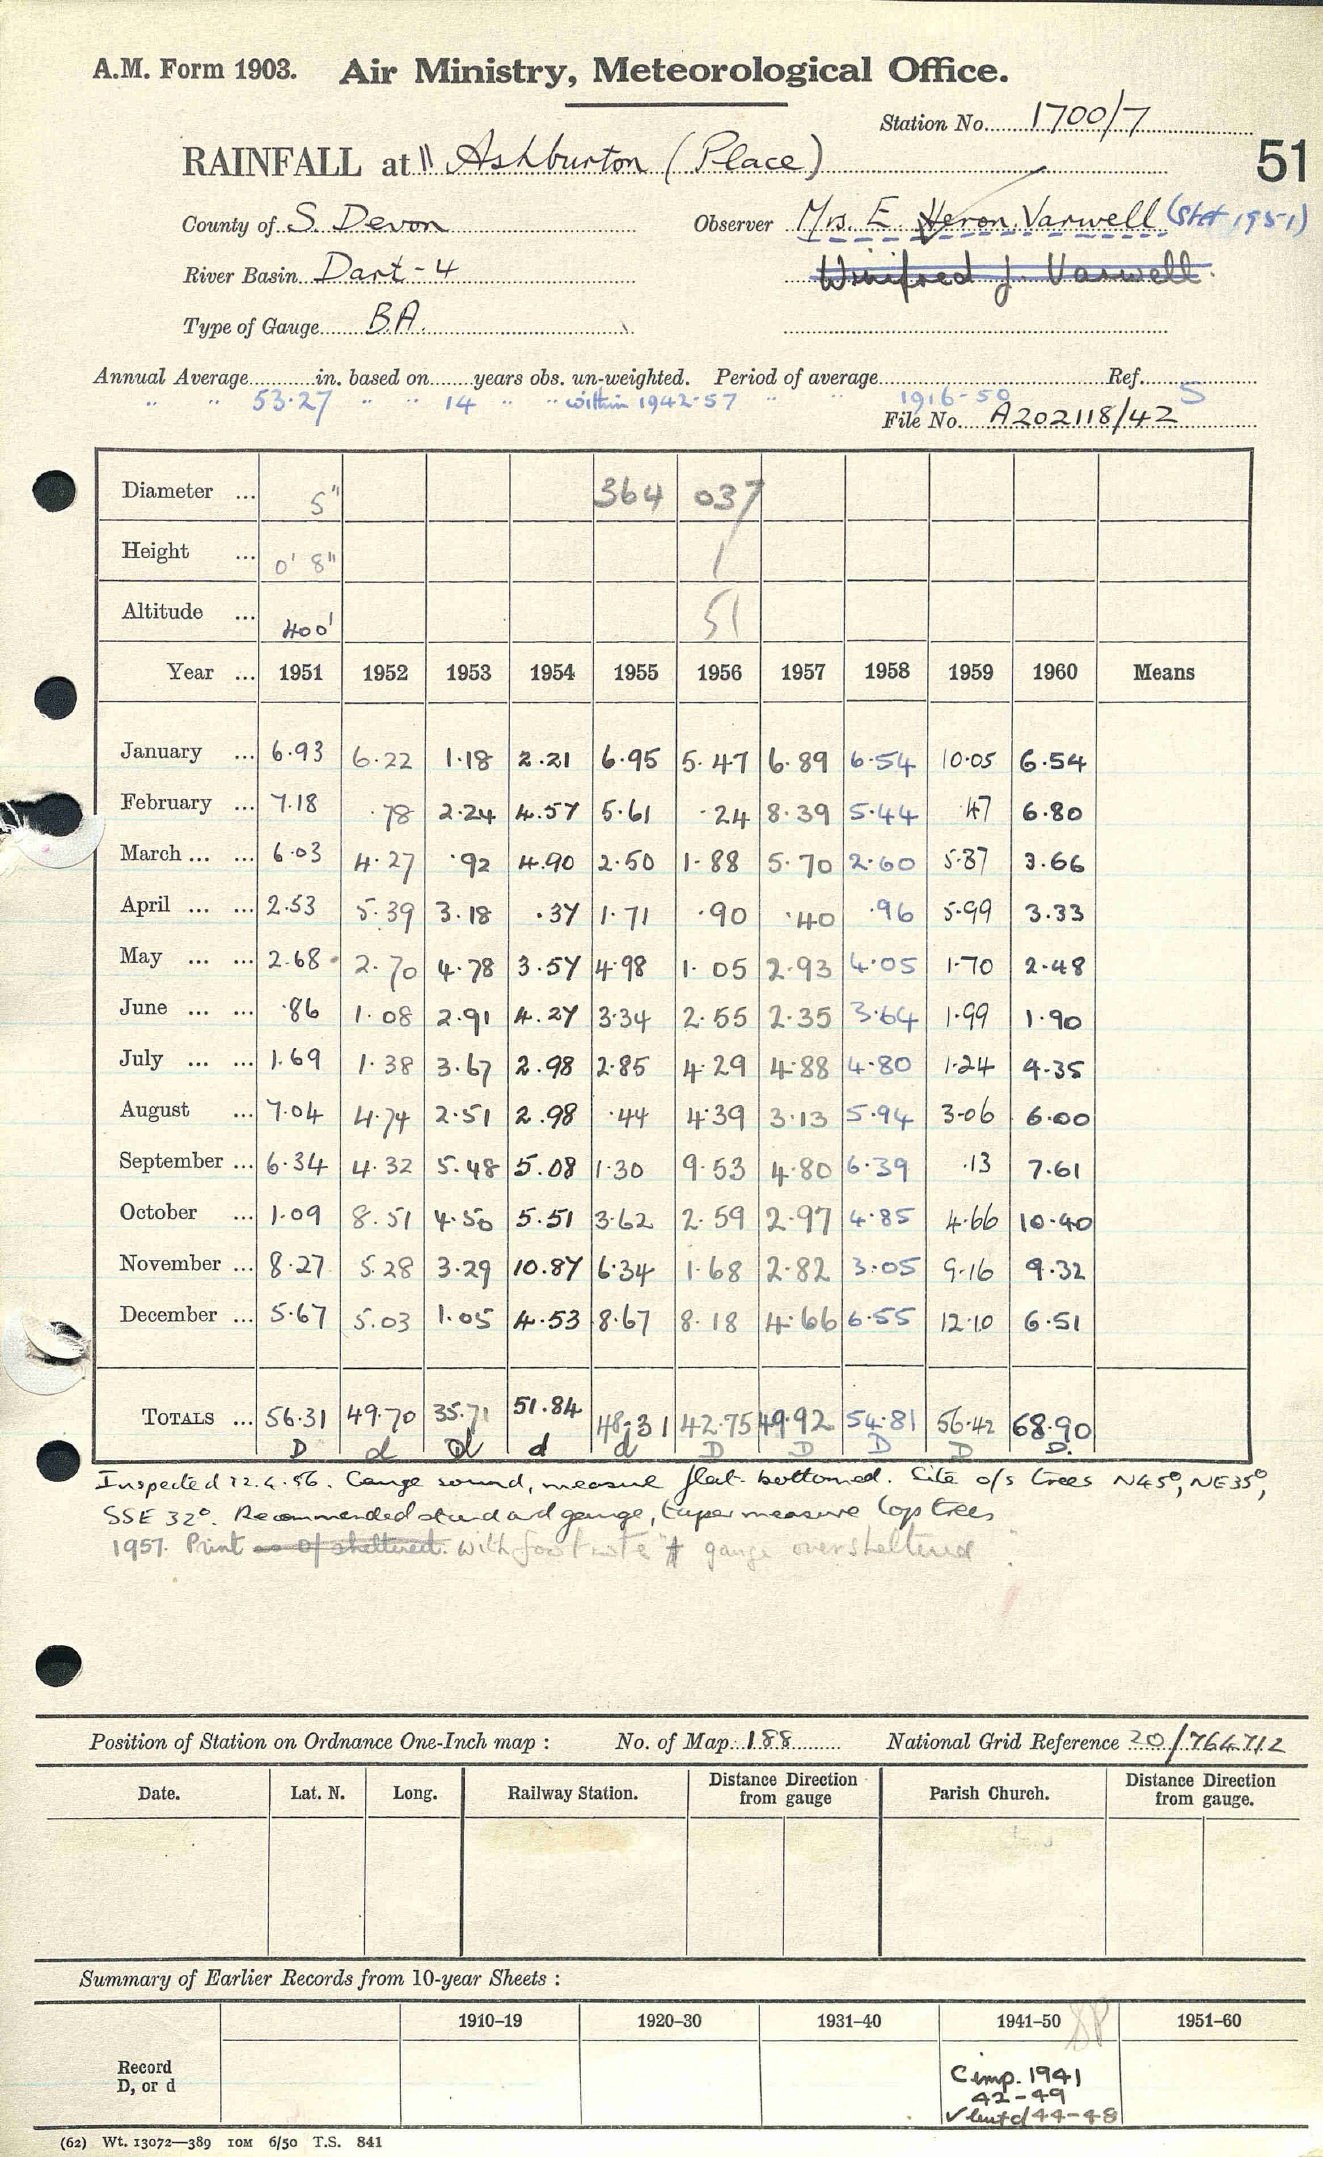 A.M. Form 1903. Air Ministry, Meteorological Office.
Station No. 1700/7
RAINFALL at " Ashburton (Place)
51
County of S. Devon Observer Mrs. E. Heron Varwell (Stet 1951)
River Basin Dart - 4 Winifred J. Varwell.
Type of Gauge B.A.
Annual Average in. based on years obs. un-weighted. Period of average Ref.
" " 53.27 " " 14 " " within 1942-57 " " 1916-50 S
File No. A202118/42
Diameter ... 5" 364 037
Height ... 0' 8" 1
Altitude ... 400' 51
Year ... 1951 1952 1953 1954 1955 1956 1957 1958 1959 1960 Means
January ... 6.93 6.22 1.18 2.21 6.95 5.47 6.89 6.54 10.05 6.54
February ... 7.18 .78 2.24 4.57 5.61 .24 8.39 5.44 .47 6.80
March ... ... 6.03 4.27 .92 4.90 2.50 1.88 5.70 2.60 5.87 3.66
April ... ... 2.53 5.39 3.18 .37 1.71 .90 .40 .96 5.99 3.33
May ... ... 2.68 2.70 4.78 3.57 4.98 1.05 2.93 4.05 1.70 2.48
June ... ... .86 1.08 2.91 4.27 3.34 2.55 2.35 3.64 1.99 1.90
July ... ... 1.69 1.38 3.67 2.98 2.85 4.29 4.88 4.80 1.24 4.35
August ... 7.04 4.74 2.51 2.98 .44 4.39 3.13 5.94 3.06 6.00
September ... 6.34 4.32 5.48 5.08 1.30 9.53 4.80 6.39 .13 7.61
October ... 1.09 8.51 4.50 5.51 3.62 2.59 2.97 4.85 4.66 10.40
November ... 8.27 5.28 3.29 10.87 6.34 1.68 2.82 3.05 9.16 9.32
December ... 5.67 5.03 1.05 4.53 8.67 8.18 4.66 6.55 12.10 6.51
TOTALS ... 56.31 49.70 35.71 51.84 48.31 42.75 49.92 54.81 56.42 68.90
D d d d d D D D D D.
Inspected 12.4.56. Gauge sound, measure flat bottomed. Site o/s trees N45°, NE35°,
SSE 32°. Recommended standard gauge, taper measure lop trees
1957. Print as o/sheltered. With footnote "‡ gauge oversheltered"
Position of Station on Ordnance One-Inch map : No. of Map 188 National Grid Reference 20/764712
Date. Lat. N. Long. Railway Station. Distance Direction from gauge Parish Church. Distance Direction from gauge.
Summary of Earlier Records from 10-year Sheets :
1910–19 1920–30 1931–40 1941–50 1951–60
SP
Record D, or d
Comp. 1941
42-49
44-48
(62) Wt. 13072—389 10M 6/50 T.S. 841